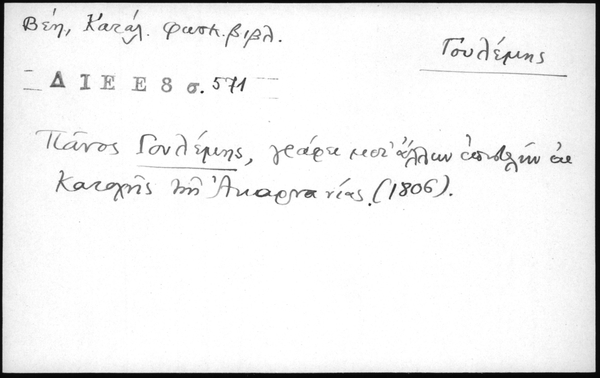 Βέη, Κατάλ. φωτ. βιβλ.
Γουλέμης
ΔΙΕΕ 8 σ. 571
Πᾶνος Γουλέμης, γράφει μετ' ἄλλων ἐπιστολήν ἐκ
Κατοχῆς τῆς Ἀκαρνανίας. (1806).